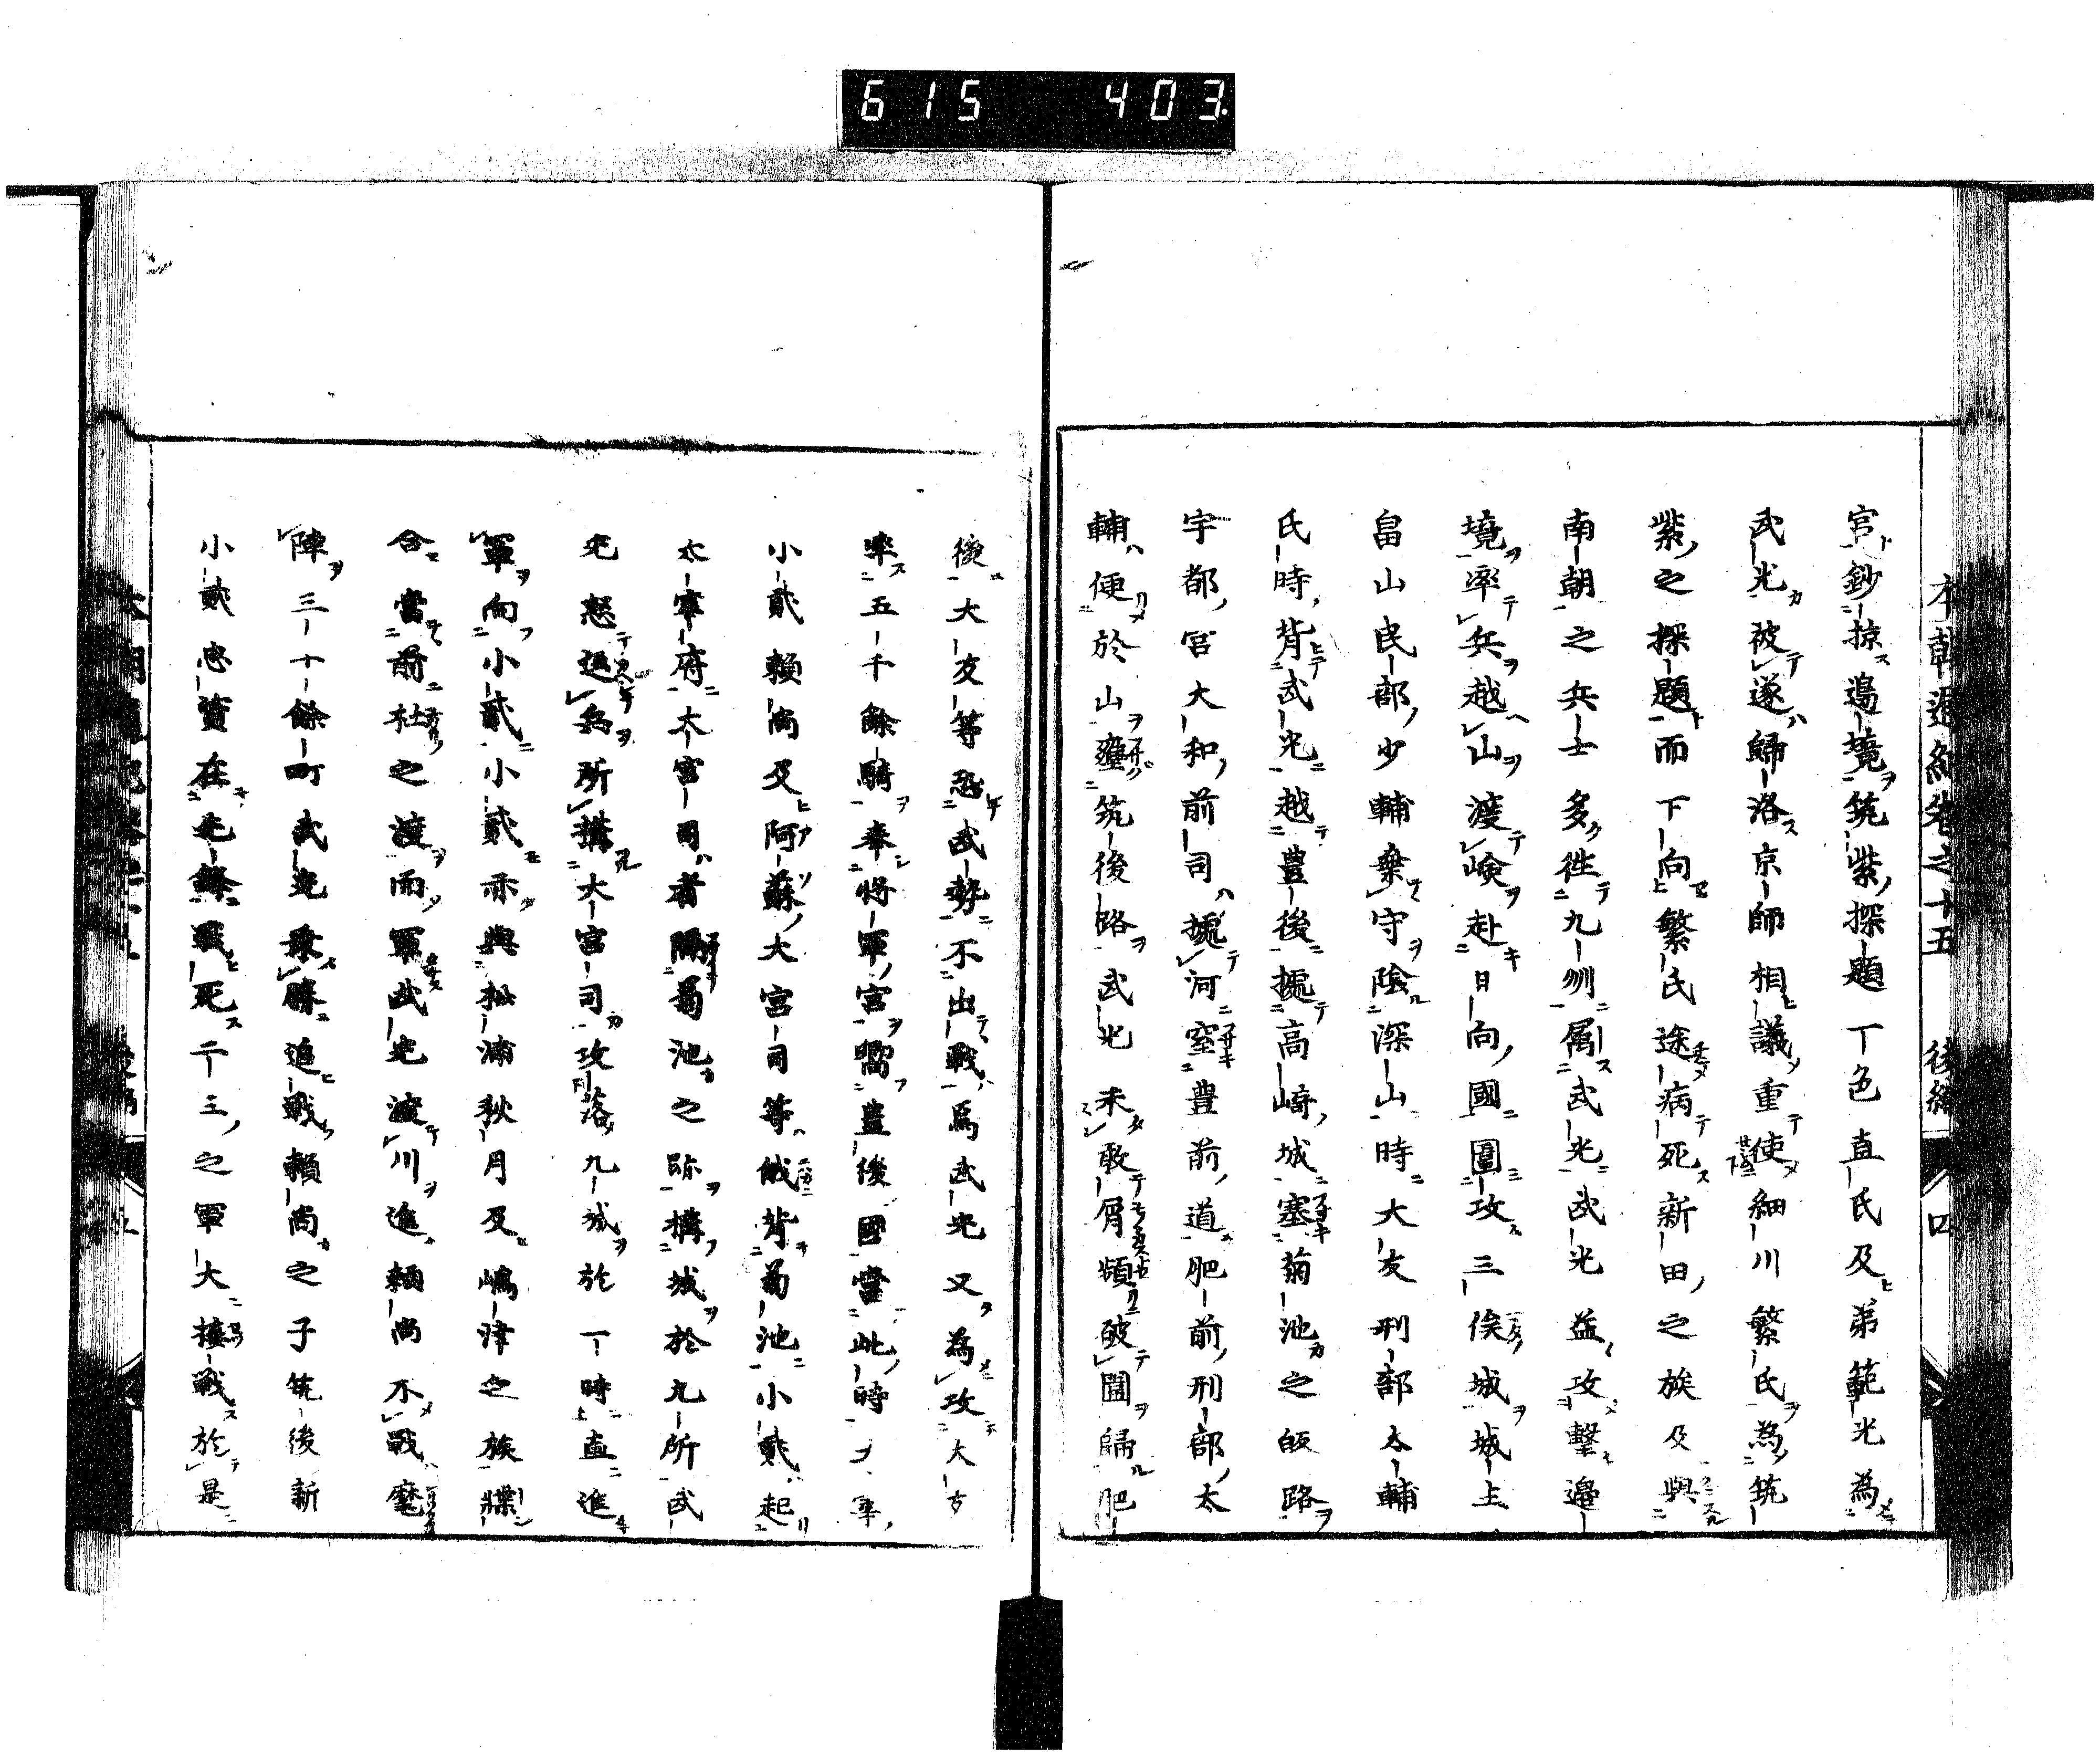 615 403
本朝通紀卷之十五 後編 四
宮鈔掠邊境筑紫探題一色直氏及弟範光為
武光被遂歸洛京師相議重使細川繁氏為筑
紫之探題而下向繁氏途病死新田之族及與
南朝之兵士多徃九州属武光武光益攻擊邉
境率兵越山渡嶮赴日向國圍攻三俣城城主
畠山民部少輔棄守隂深山時大友刑部太輔
氏時背武光越豊後據高崎城塞菊池之皈路
宇都宮大和前司據河窒豊前道肥前刑部太
輔便於山壅筑後路武光未敢屑頻破圍歸肥
後大友等恐武勢不出戰爲武光又為攻大古
率五千餘騎奉将軍宮嚮豊後國當此時
小貳頼尚及阿蘇大宮司等俄背菊池小貳起
太宰府大宮司者隔菊池之跡構城於九所武
光怒返兵所搆大宮司攻落九城於一時直進
軍向小貳小貳亦與松浦秋月及嶋津之族牒
合當前杜之渡而軍武光渡川進頼尚不戰麾
陣三十餘町武光乗勝追戰頼尚之子筑後新
小貳忠資在先鋒戰死一千三之軍大接戰於是